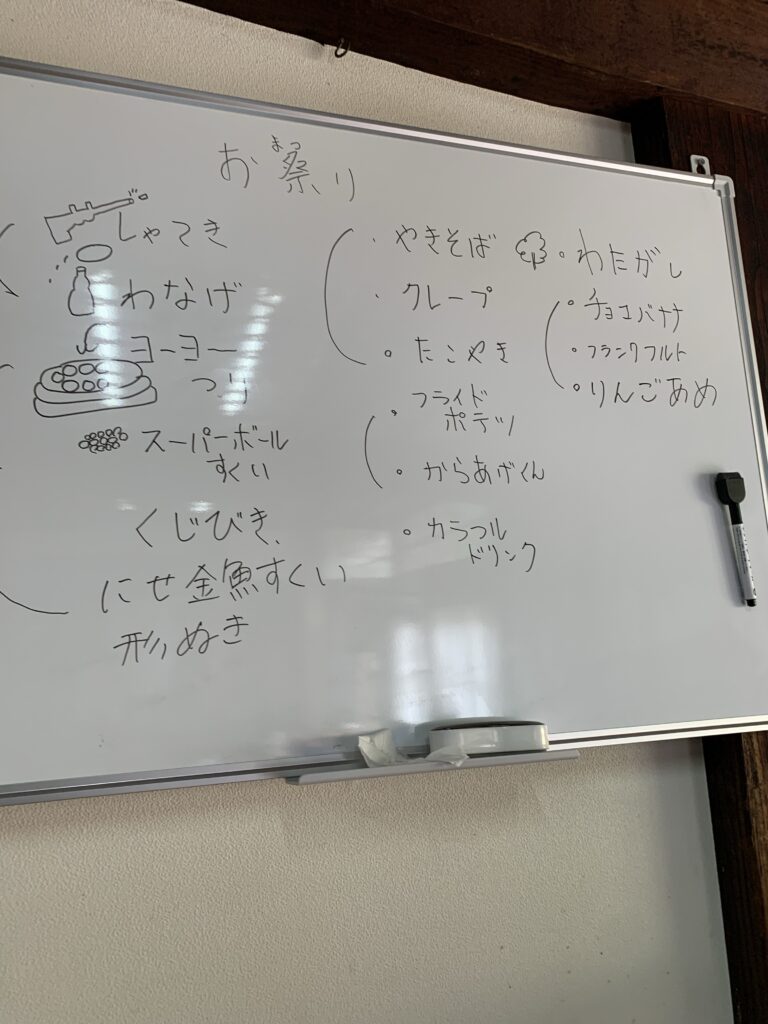 お祭り
まつ
しゃてき
わなげ
ヨーヨー
つり
スーパーボール
すくい
くじびき、
にせ金魚すくい
形ぬき
・やきそば
・クレープ
・たこやき
・フライド
ポテツ
・からあげくん
・カラフル
ドリンク
・わたがし
・チョコバナナ
・フランクフルト
・りんごあめ